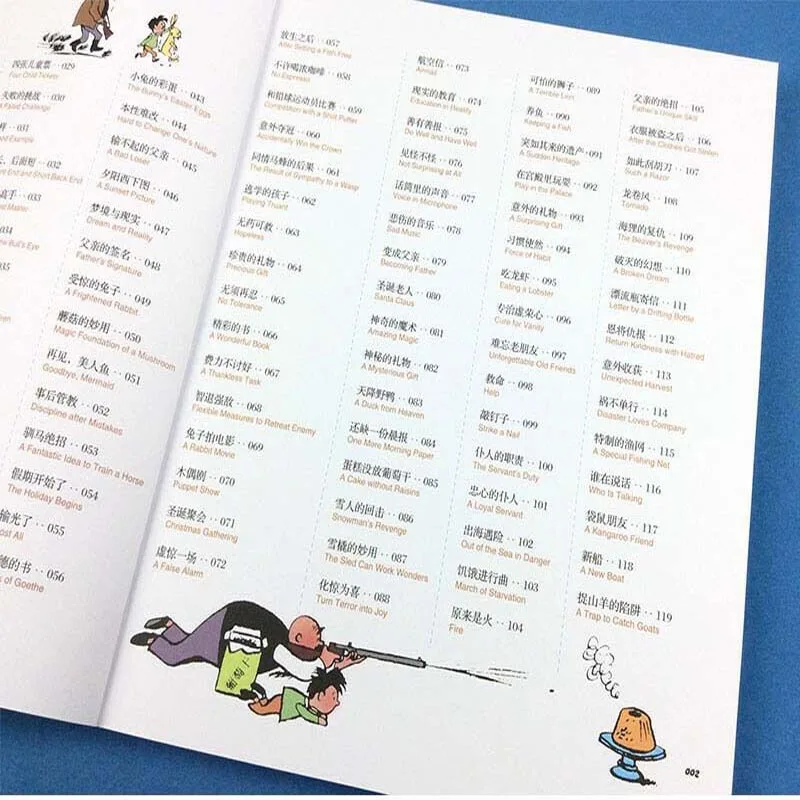 四张儿童票 · · 029
Four Child Tickets
030
031
032
033
034
035
小兔的彩蛋 · · 043
The Bunny's Easter Eggs
本性难改 · · 044
Hard to Change One's Nature
输不起的父亲 · · 045
A Bad Loser
夕阳西下图 · · 046
A Sunset Picture
梦境与现实 · · 047
Dream and Reality
父亲的签名 · · 048
Father's Signature
受惊的兔子 · · 049
A Frightened Rabbit
蘑菇的妙用 · · 050
Magic Foundation of a Mushroom
再见，美人鱼 · · 051
Goodbye, Mermaid
事后管教 · · 052
Discipline after Mistakes
驯马绝招 · · 053
A Fantastic Idea to Train a Horse
假期开始了 · · 054
The Holiday Begins
输光了 · · 055
Lost All
德的书 · · 056
of Goethe
放生之后 · · 057
After Setting a Fish Free
不许喝浓咖啡 · · 058
No Espresso
和铅球运动员比赛 · · 059
Competition with a Shot Putter
意外夺冠 · · 060
Accidentally Win the Crown
同情马蜂的后果 · · 061
The Result of Sympathy to a Wasp
逃学的孩子 · · 062
Playing Truant
无药可教 · · 063
Hopeless
珍贵的礼物 · · 064
Precious Gift
无须再忍 · · 065
No Tolerance
精彩的书 · · 066
A Wonderful Book
费力不讨好 · · 067
A Thankless Task
智退强敌 · · 068
Flexible Measures to Retreat Enemy
兔子拍电影 · · 069
A Rabbit Movie
木偶剧 · · 070
Puppet Show
圣诞聚会 · · 071
Christmas Gathering
虚惊一场 · · 072
A False Alarm
航空信 · · 073
Airmail
现实的教育 · · 074
Education in Reality
善有善报 · · 075
Do Well and Have Well
见怪不怪 · · 076
Not Surprising at All
话筒里的声音 · · 077
Voice in Microphone
悲伤的音乐 · · 078
Sad Music
变成父亲 · · 079
Becoming Father
圣诞老人 · · 080
Santa Claus
神奇的魔术 · · 081
Amazing Magic
神秘的礼物 · · 082
A Mysterious Gift
天降野鸭 · · 083
A Duck from Heaven
还缺一份晨报 · · 084
One More Morning Paper
蛋糕没放葡萄干 · · 085
A Cake without Raisins
雪人的回击 · · 086
Snowman's Revenge
雪橇的妙用 · · 087
The Sled Can Work Wonders
化惊为喜 · · 088
Turn Terror into Joy
可怕的狮子 · · 089
A Terrible Lion
养鱼 · · 090
Keeping a Fish
突如其来的遗产 · 091
A Sudden Heritage
在宫殿里玩耍 · · 092
Play in the Palace
意外的礼物 · · 093
A Surprising Gift
习惯使然 · · 094
Force of Habit
吃龙虾 · · 095
Eating a Lobster
专治虚荣心 · · 096
Cure for Vanity
难忘老朋友 · · 097
Unforgettable Old Friends
救命 · · 098
Help
敲钉子 · · 099
Strike a Nail
仆人的职责 · · 100
The Servant's Duty
忠心的仆人 · · 101
A Loyal Servant
出海遇险 · · 102
Out of the Sea in Danger
饥饿进行曲 · · 103
March of Starvation
原来是火 · · 104
Fire
父亲的绝招 · · 105
Father's Unique Skill
衣服被盗之后 · · 106
After the Clothes Got Stolen
如此刮胡刀 · · 107
Such a Razor
龙卷风 · · 108
Tornado
海狸的复仇 · · 109
The Beaver's Revenge
破灭的幻想 · · 110
A Broken Dream
漂流瓶寄信 · · 111
Letter by a Drifting Bottle
恩将仇报 · · 112
Return Kindness with Hatred
意外收获 · · 113
Unexpected Harvest
祸不单行 · · 114
Disaster Loves Company
特制的渔网 · · 115
A Special Fishing Net
谁在说话 · · 116
Who Is Talking
袋鼠朋友 · · 117
A Kangaroo Friend
新船 · · 118
A New Boat
捉山羊的陷阱 · · 119
A Trap to Catch Goats
葡萄干
002